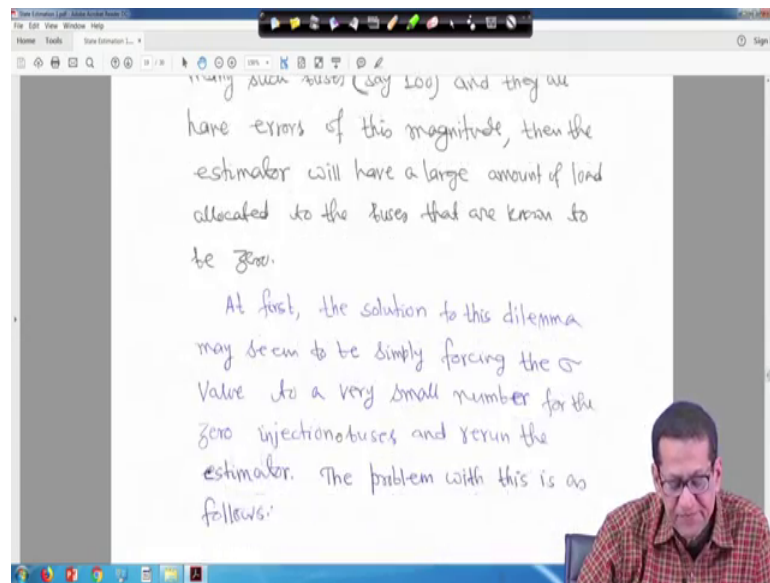 State Estimation 1.pdf - Adobe Acrobat Reader DC
File Edit View Window Help
Home Tools State Estimation 1... × Sign
many such buses (say 100) and they all
have errors of this magnitude, then the
estimator will have a large amount of load
allocated to the buses that are known to
be zero.
At first, the solution to this dilemma
may seem to be simply forcing the σ
value to a very small number for the
zero injection buses and rerun the
estimator. The problem with this is as
follows: